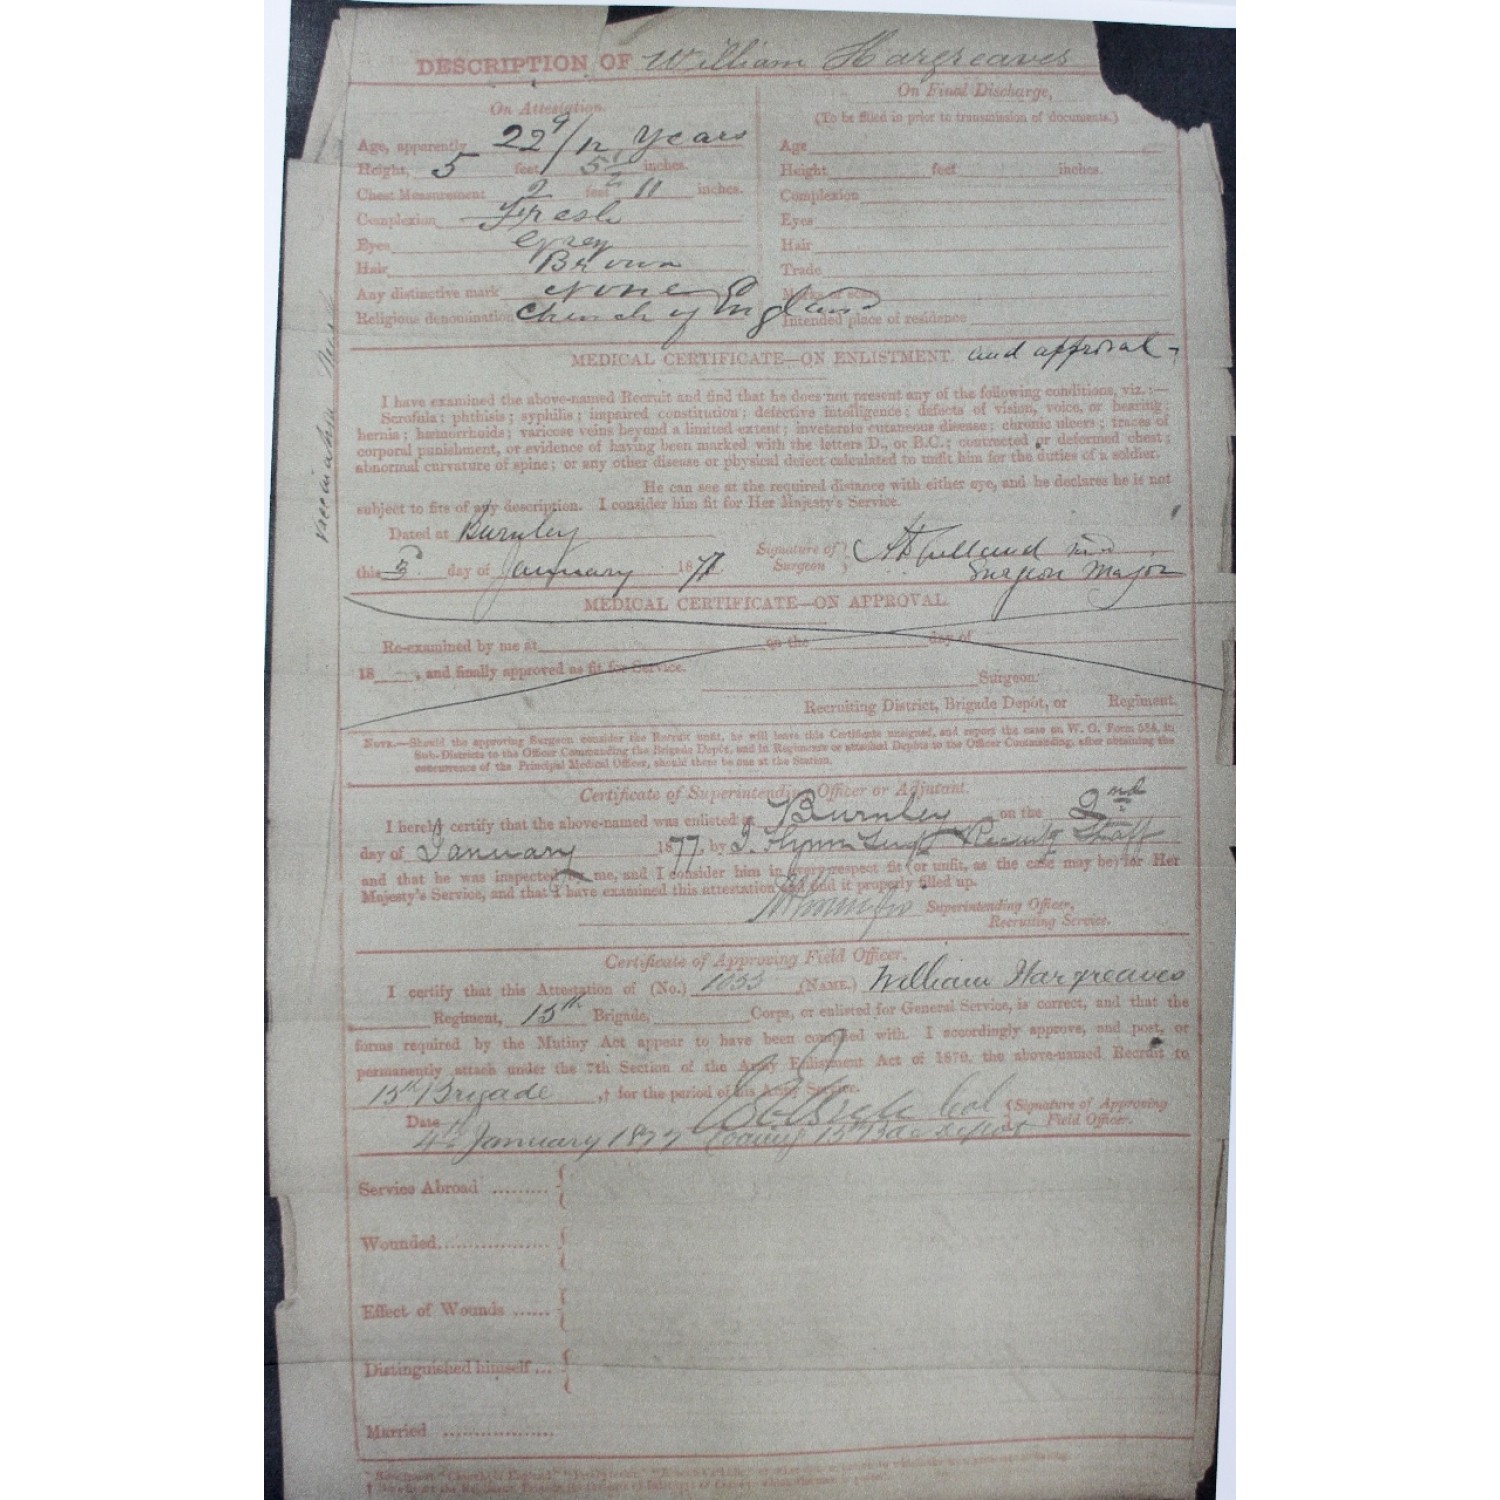 DESCRIPTION OF William Hargreaves
On Attestation.
Age, apparently 22 9/12 Years
Height, 5 feet 5 1/2 inches.
Chest Measurement 2 feet 11 inches.
Complexion Fresh
Eyes Grey
Hair Brown
Any distinctive mark None
Religious denomination Church of England
On Final Discharge,
(To be filled in prior to transmission of documents.)
Age
Height feet inches.
Complexion
Eyes
Hair
Trade
Marks or scars
Intended place of residence
vaccination
MEDICAL CERTIFICATE—ON ENLISTMENT. and approval
I have examined the above-named Recruit and find that he does not present any of the following conditions, viz.:—
Scrofula; phthisis; syphilis; impaired constitution; defective intelligence; defects of vision, voice, or hearing;
hernia; hæmorrhoids; varicose veins beyond a limited extent; inveterate cutaneous disease; chronic ulcers; traces of
corporal punishment, or evidence of having been marked with the letters D., or B.C.; contracted or deformed chest;
abnormal curvature of spine; or any other disease or physical defect calculated to unfit him for the duties of a soldier.
He can see at the required distance with either eye, and he declares he is not
subject to fits of any description. I consider him fit for Her Majesty's Service.
Dated at Burnley
this 3 day of January 1877. Signature of Surgeon Surgeon Major
MEDICAL CERTIFICATE—ON APPROVAL.
Re-examined by me at on the day of
18 , and finally approved as fit for Service.
Surgeon.
Recruiting District, Brigade Depôt, or Regiment.
NOTE.—Should the approving Surgeon consider the Recruit unfit, he will leave this Certificate unsigned, and report the case on W. O. Form 534, in
Sub-Districts to the Officer Commanding the Brigade Depôt, and in Regiments or attached Depôts to the Officer Commanding, after obtaining the
concurrence of the Principal Medical Officer, should there be one at the Station.
Certificate of Superintending Officer or Adjutant.
I hereby certify that the above-named was enlisted at Burnley on the 2nd
day of January 1877, by Flynn Staff
and that he was inspected by me, and I consider him in every respect fit (or unfit, as the case may be) for Her
Majesty's Service, and that I have examined this attestation and find it properly filled up.
Superintending Officer,
Recruiting Service.
Certificate of Approving Field Officer.
I certify that this Attestation of (No.) 1033 (NAME.) William Hargreaves
Regiment, 15th Brigade, Corps, or enlisted for General Service, is correct, and that the
forms required by the Mutiny Act appear to have been complied with. I accordingly approve, and post, or
permanently attach under the 7th Section of the Army Enlistment Act of 1870, the above-named Recruit to
15th Brigade ,† for the period of his Army Service.
Col Signature of Approving
Field Officer.
Date 4th January 1877 15th Depot
Service Abroad
Wounded
Effect of Wounds
Distinguished himself
Married